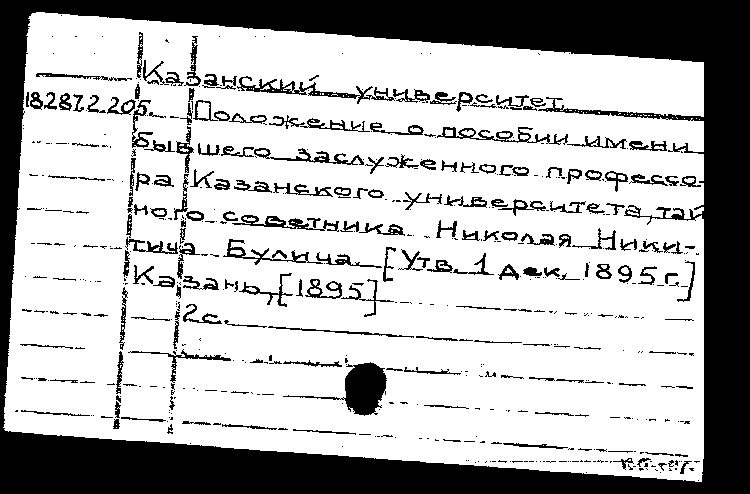 Казанский университет.
18.287.2.205. Положение о пособии имени
бывшего заслуженного профессо-
ра Казанского университета, тай
ного советника Николая Ники-
тича Булича. [Утв. 1 дек. 1895 г.]
Казань, [1895]
2 с.